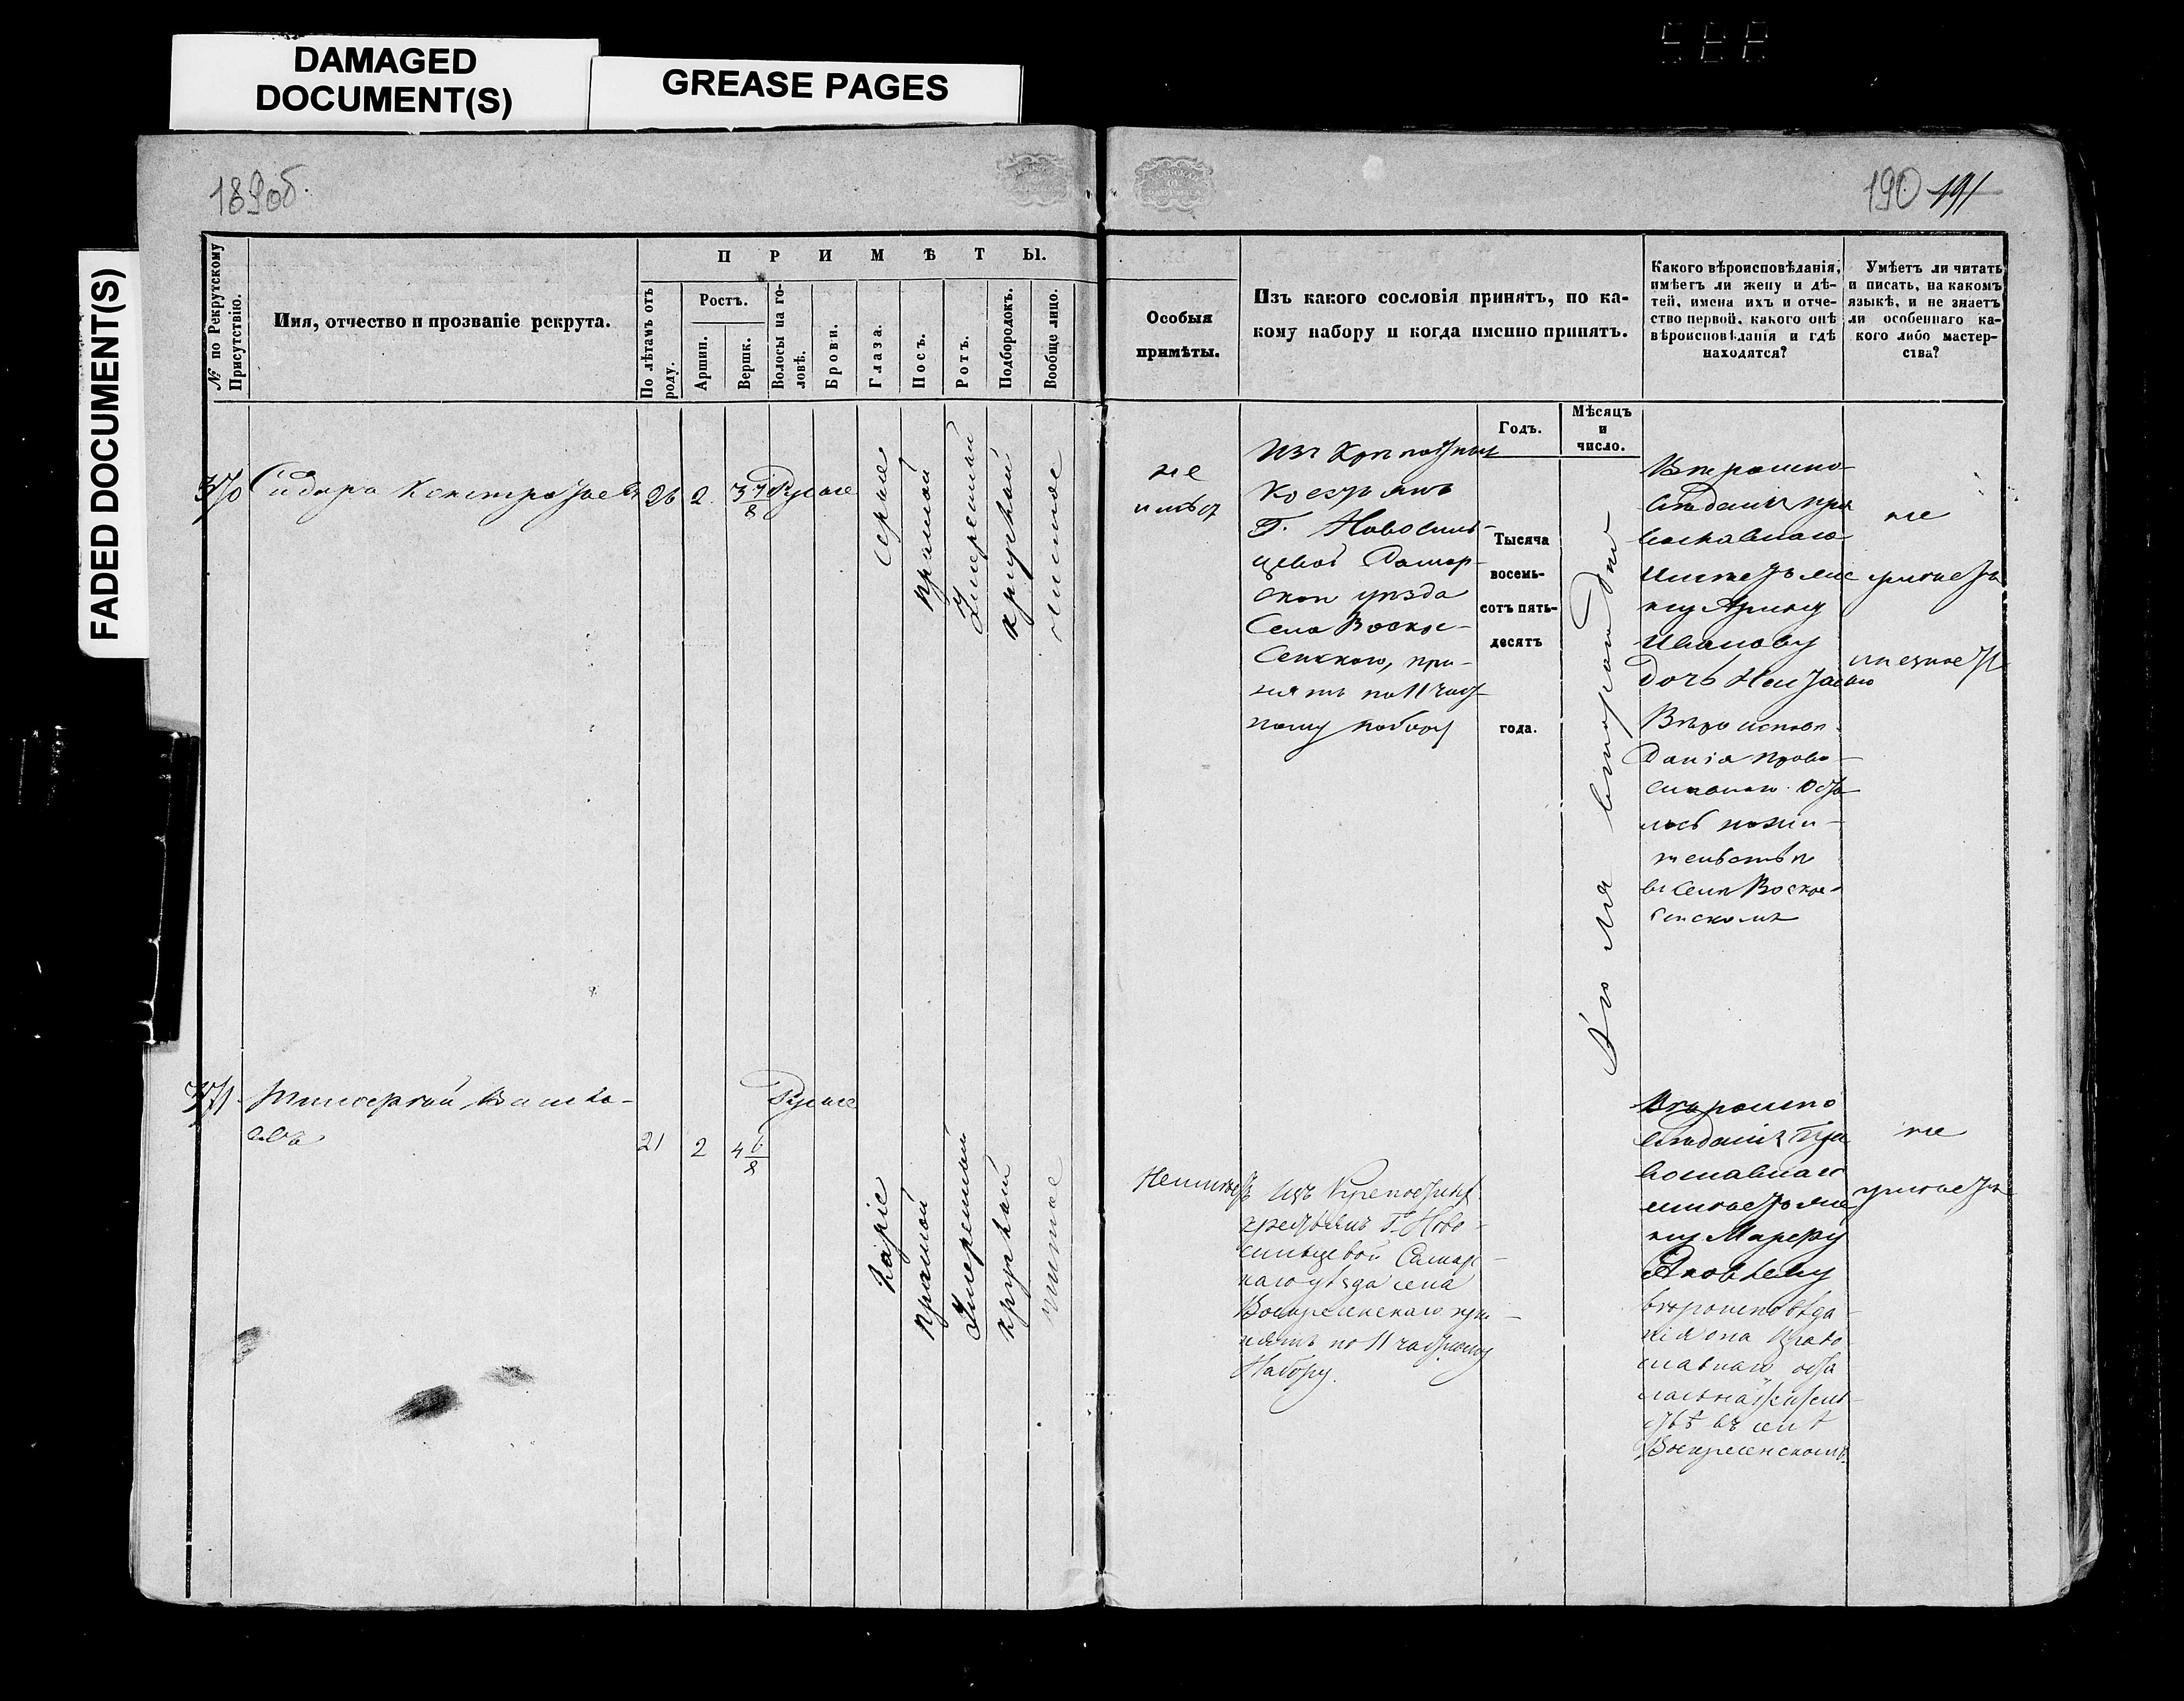 DAMAGED
DOCUMENT(S)
GREASE PAGES
FADED DOCUMENT(S)
189об.
190 191
№ по Рекрутскому
Присутствію.
Имя, отчество и прозваніе рекрута.
ПРИМѢТЫ.
По лѣтамъ отъ
роду.
Ростъ.
Аршин.
Вершк.
Волосы на го-
ловѣ.
Брови.
Глаза.
Носъ.
Ротъ.
Подбородокъ.
Вообще лицо.
Особыя
примѣты.
Изъ какого сословія принятъ, по ка-
кому набору и когда именно принятъ.
Какого вѣроисповѣданія,
имѣетъ ли жену и дѣ-
тей, имена ихъ и отче-
ство первой, какого онѣ
вѣроисповѣданія и гдѣ
находятся?
Умѣетъ ли читать
и писать, на какомъ
языкѣ, и не знаетъ
ли особеннаго ка-
кого либо мастер-
ства?
Годъ.
Мѣсяцъ
и
число.
370
Сидоръ
26
2
3 7/8
Русые
серые
прямой
Умеренный
круглый
чистое
не
имѣет
Изъ Крѣпостныхъ
Крестьянъ
Г. Новосиль-
цевой Самар-
скаго уѣзда
Села Воскре-
сенскаго, при-
нятъ по 11 част-
ному набору
Тысяча
восемь-
сотъ пять-
десятъ
года.
второй день
Вѣроиспо-
вѣданія пра
вославнаго
Имѣетъ же
ну Арину
Иванову
Дочь
Вѣроисповѣ
данія право-
славнаго. Оста
лась на жи-
тельствѣ
въ селѣ Воскре-
сенскомъ
не
умѣетъ
371
21
2
4 6/8
Русые
Каріе
прямой
Умеренный
круглый
чистое
Неимѣетъ
Изъ Крепостныхъ
крестьянъ Г. Ново-
сильцевой Самарс-
каго уѣзда села
Воскресенскаго при-
нятъ по 11 частному
Набору.
Вѣроиспо
вѣданія Пра
вославнаго
имѣетъ же
ну Марфу
Яковлеву
вѣроисповѣда-
нія она Право
славнаго оста
лась на жительс-
твѣ въ селѣ
Воскресенскомъ.
не
умѣетъ